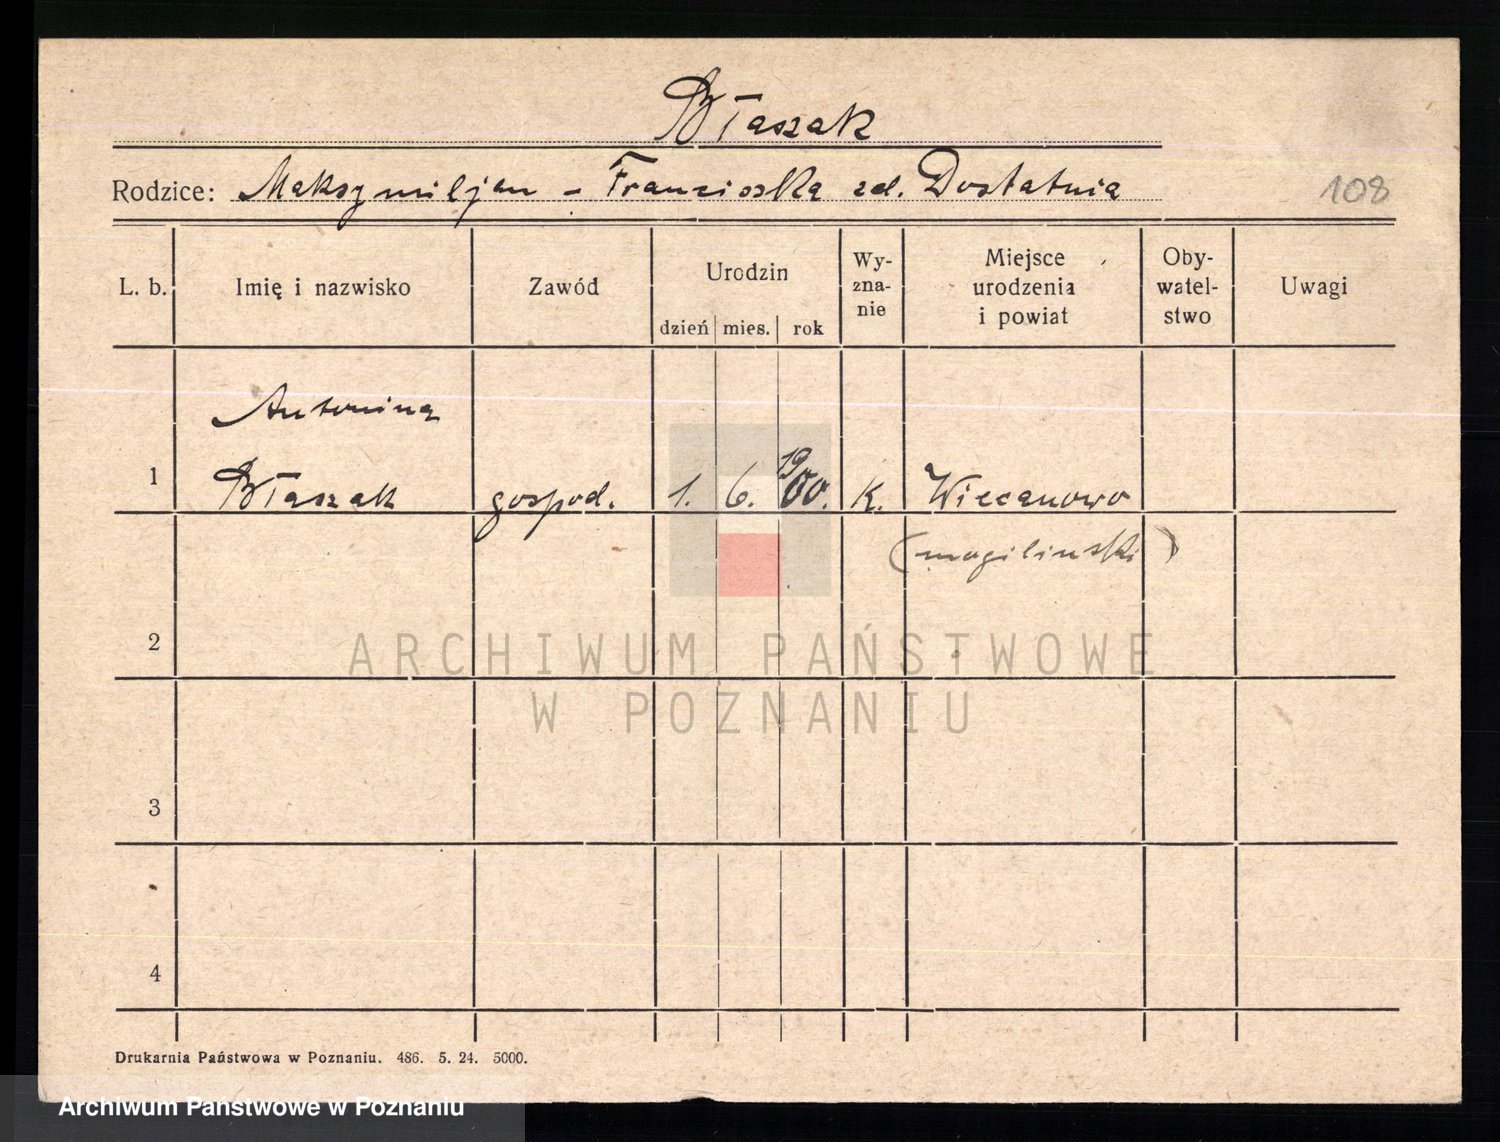 Błaszak
Rodzice: Maksymiljan – Franciszka zd. Dostatnia
108
L. b.
Imię i nazwisko
Zawód
Urodzin
dzień mies. rok
Wy-
zna-
nie
Miejsce
urodzenia
i powiat
Oby-
watel-
stwo
Uwagi
Antonina
1 Błaszak gospod. 1. 6. 1900. k. Wiecanowo
(mogilinski)
2
3
4
ARCHIWUM PAŃSTWOWE
W POZNANIU
Drukarnia Państwowa w Poznaniu. 486. 5. 24. 5000.
Archiwum Państwowe w Poznaniu